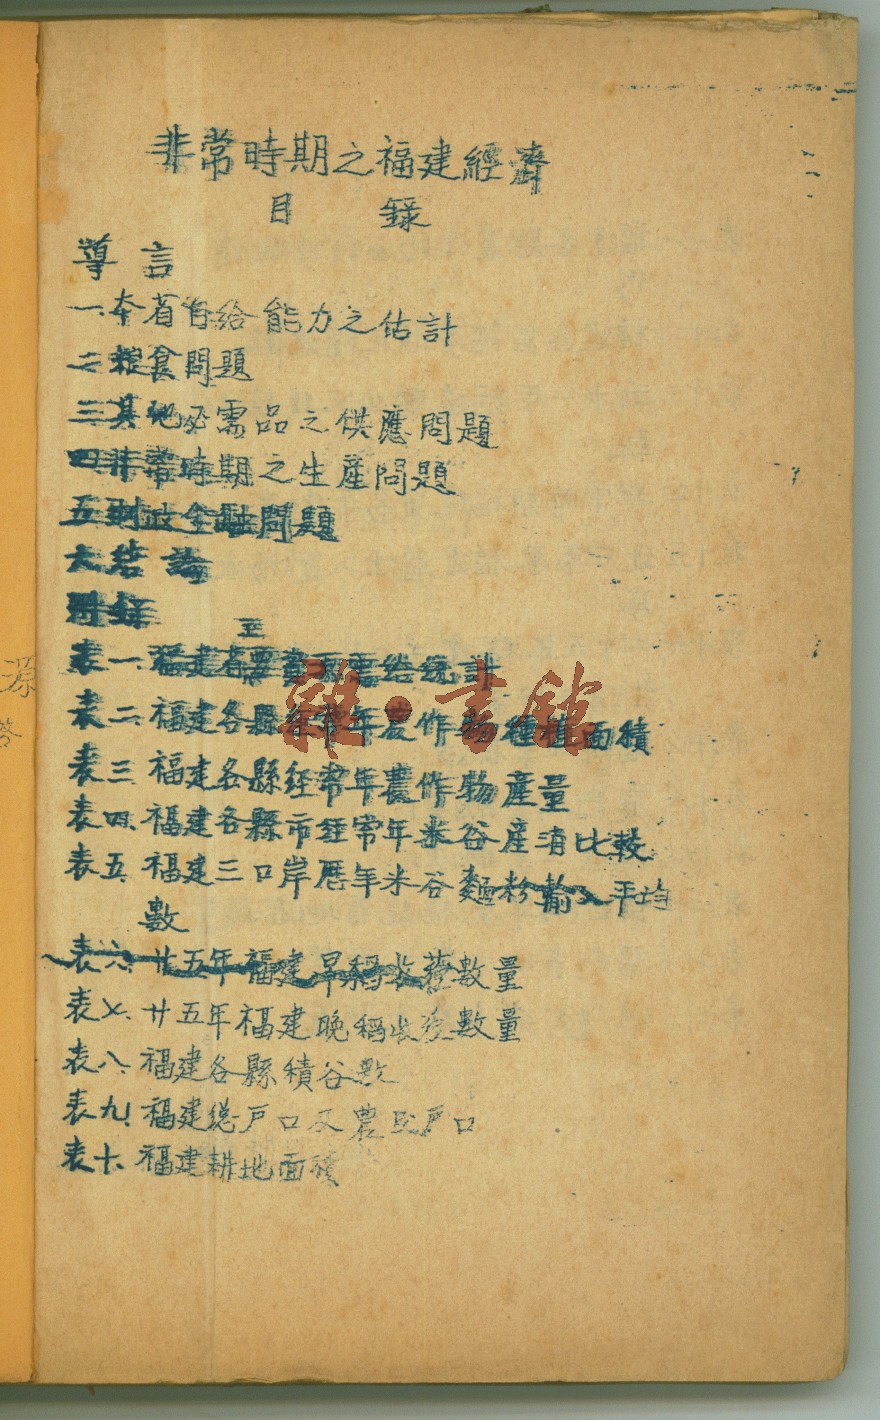 非常時期之福建經濟
目錄
導言
一、本省自給能力之估計
二、糧食問題
三、其他必需品之供應問題
四、非常時期之生產問題
五、財政金融問題
六、結論
附錄
表一、福建省主要資源需給統計
表二、福建各縣經常年農作物種植面積
表三、福建各縣經常年農作物產量
表四、福建各縣市經常年米谷產消比較
表五、福建三口岸歷年米谷麵粉輸入平均
數
表六、廿五年福建早稻收穫數量
表七、廿五年福建晚稻收穫數量
表八、福建各縣積谷數
表九、福建總戶口及農民戶口
表十、福建耕地面積
雜·書館